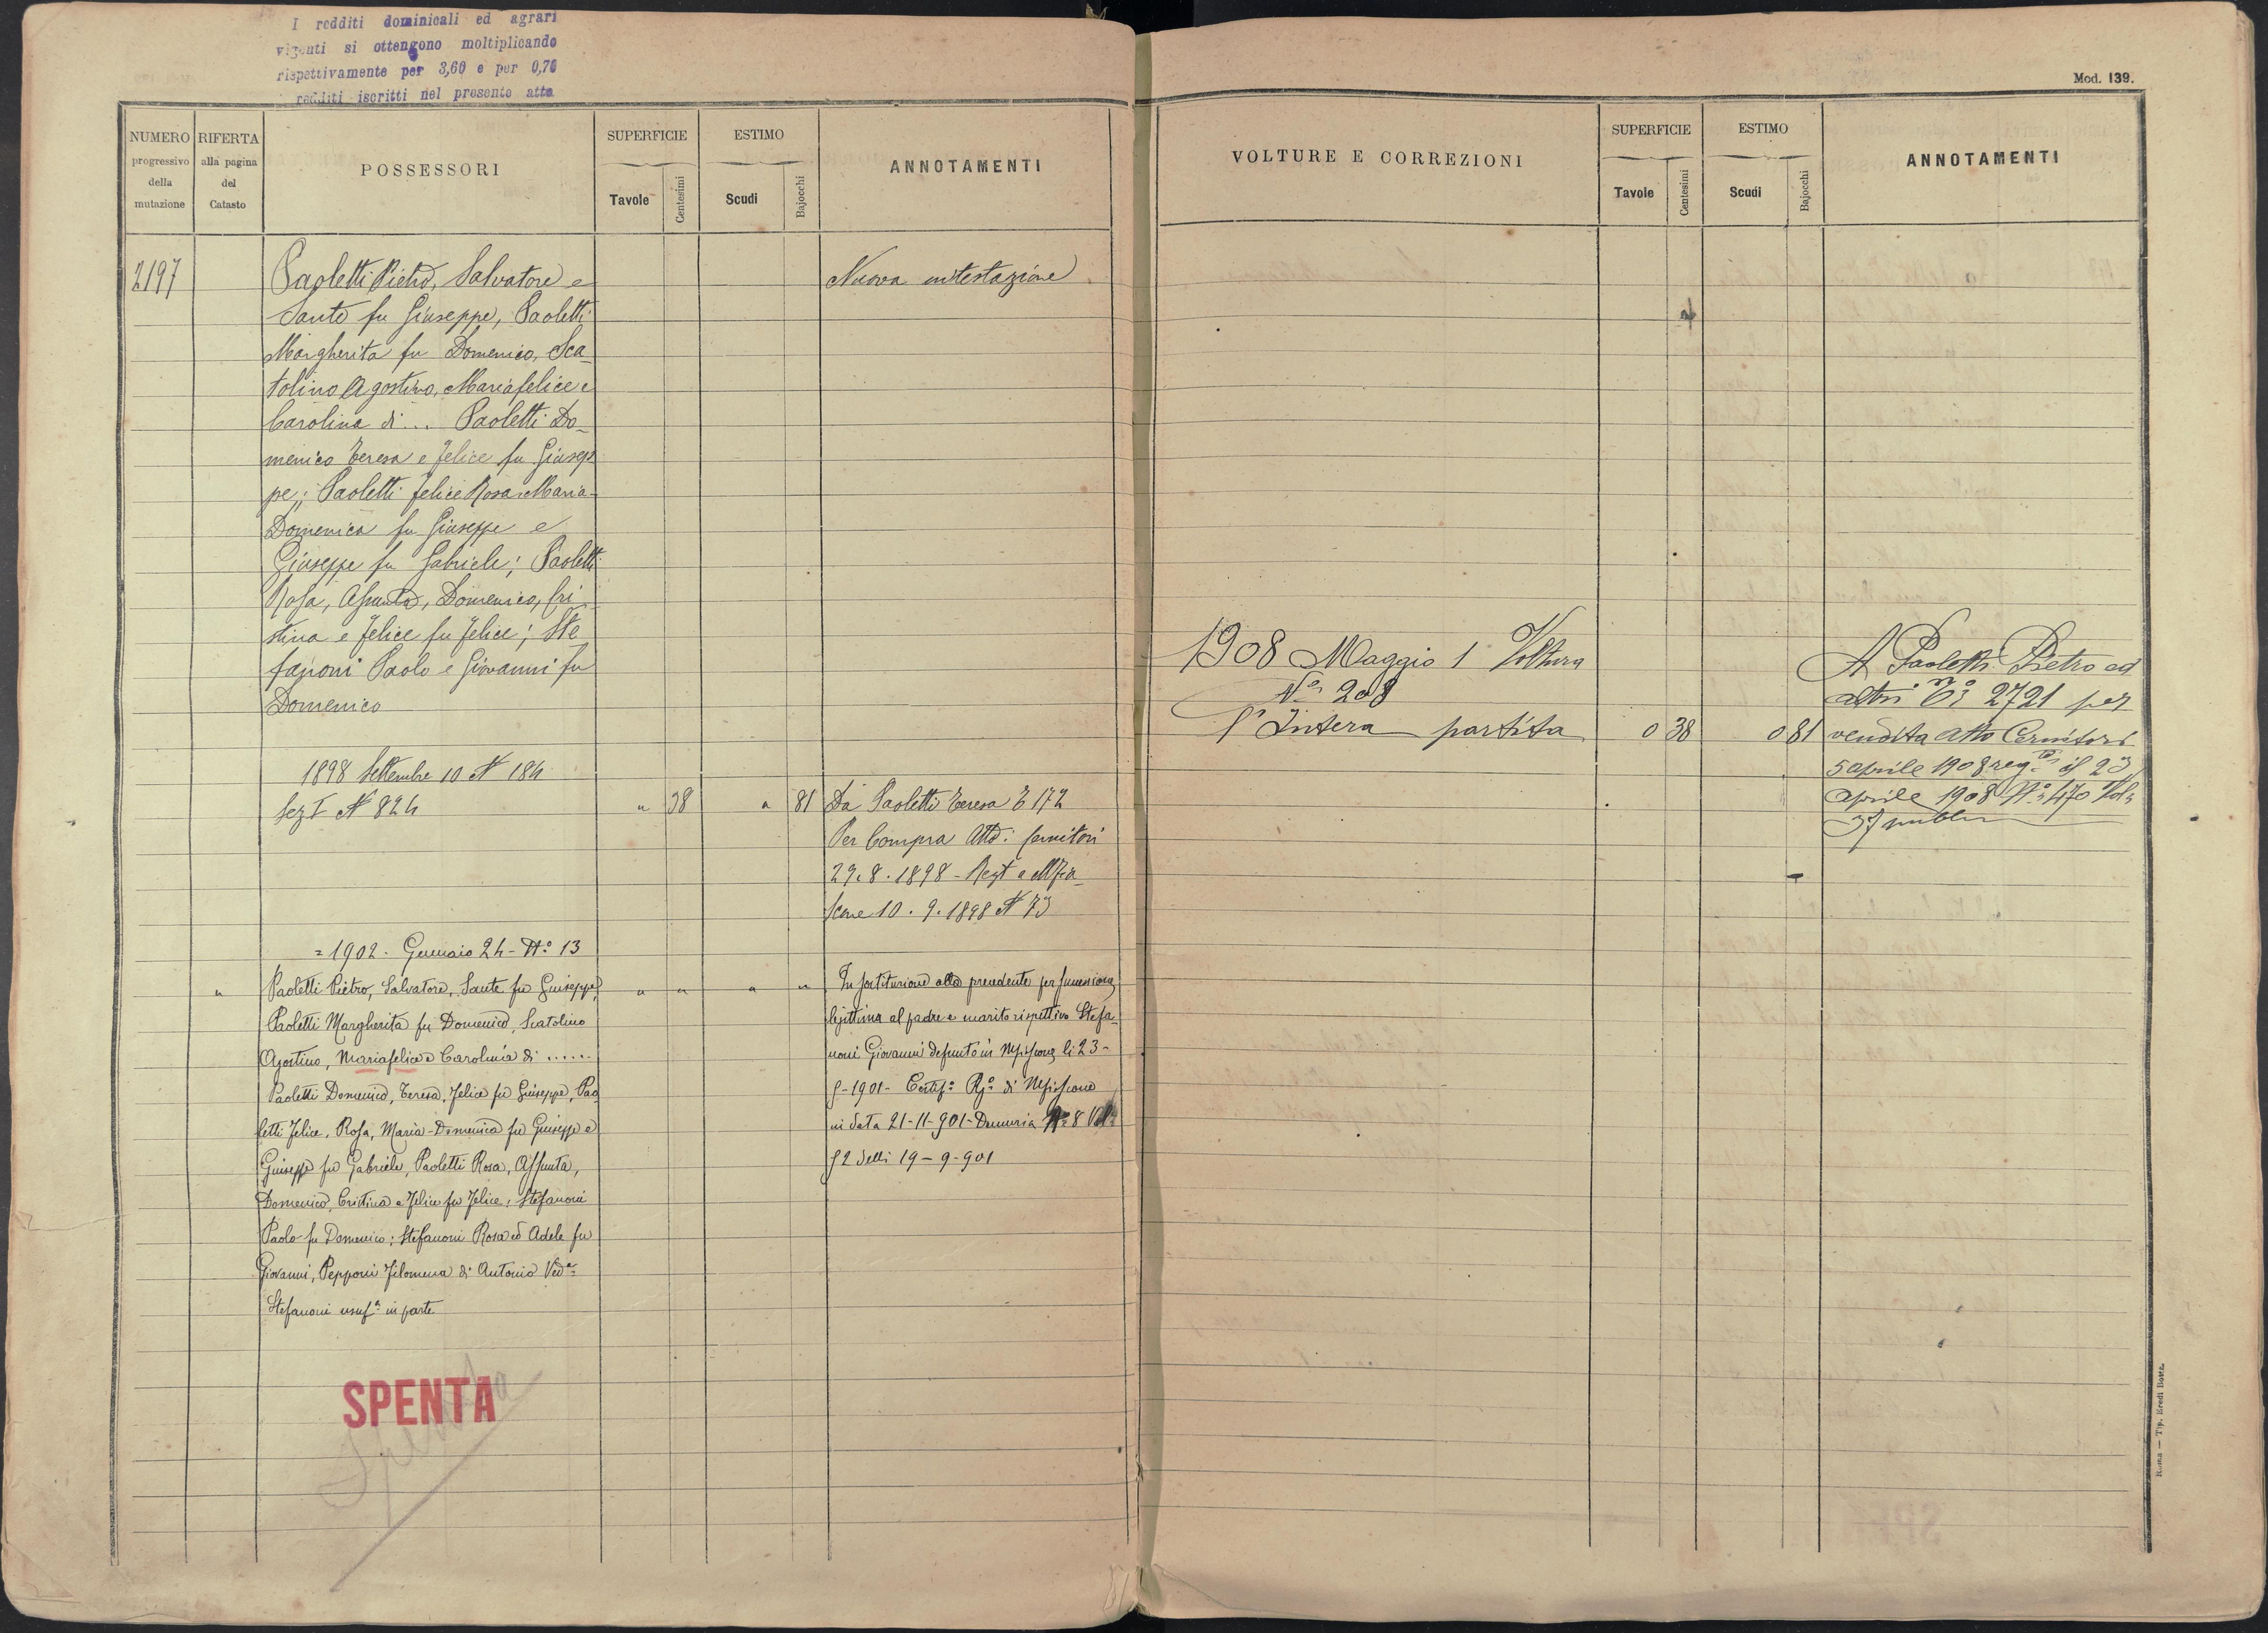 I redditi dominicali ed agrari
vigenti si ottengono moltiplicando
rispettivamente per 3,60 e per 0,70
redditi iscritti nel presente atto
NUMERO
progressivo
della
mutazione
RIFERTA
alla pagina
del
Catasto
POSSESSORI
SUPERFICIE
Tavole
Centesimi
ESTIMO
Scudi
Bajocchi
ANNOTAMENTI
2197
Paoletti Pietro, Salvatore e
Sante fu Giuseppe, Paoletti
Margherita fu Domenico, Sca-
tolino Agostino, Mariafelice e
Carolina di ... Paoletti Do-
menico Teresa e Felice fu Giusep
pe; Paoletti Felice Rosa Maria-
Domenica fu Giuseppe e
Giuseppe fu Gabriele; Paoletti
Rosa, Assunta, Domenico, Cri
stina e Felice fu Felice; Ste
fanoni Paolo e Giovanni fu
Domenico
Nuova intestazione
1898 Settembre 10 N 184
Sez I N 824
" 38 " 81
Da Paoletti Teresa E 172
Per Compra Atto: Cernitori
29.8.1898 - Regt a
10.9.1898 N 73
= 1902. Gennaio 24 - No 13
" Paoletti Pietro, Salvatore, Sante fu Giuseppe,
Paoletti Margherita fu Domenico, Scatolino
Agostino, Mariafelice e Carolina di .....
Paoletti Domenico, Teresa, Felice fu Giuseppe, Pao
letti Felice, Rosa, Maria-Domenica fu Giuseppe e
Giuseppe fu Gabriele, Paoletti Rosa, Assunta,
Domenico, Cristina e Felice fu Felice; Stefanoni
Paolo fu Domenico; Stefanoni Rosa ed Adele fu
Giovanni, Pepponi Filomena di Antonio Veda
Stefanoni usufa in parte
" " " "
In sostituzione alla precedente per successione
legittima al padre e marito rispettivo Stefa-
noni Giovanni defunto in li 23-
-1901- Certifo di
in data 21-11-901- Denunzia No 8 Vol
52 delli 19-9-901
SPENTA
Spenta
Mod. 139.
VOLTURE E CORREZIONI
SUPERFICIE
Tavole
Centesimi
ESTIMO
Scudi
Bajocchi
ANNOTAMENTI
1908 Maggio 1 Voltura
No 208
l'Intera partita
0 38 0 81
A Paoletti Pietro ed
altri 2721 per
vendita atto Cernitori
5 aprile 1908 reg. il 23
aprile 1908 No 470 Vol
37
Roma — Tip. Eredi Botta.